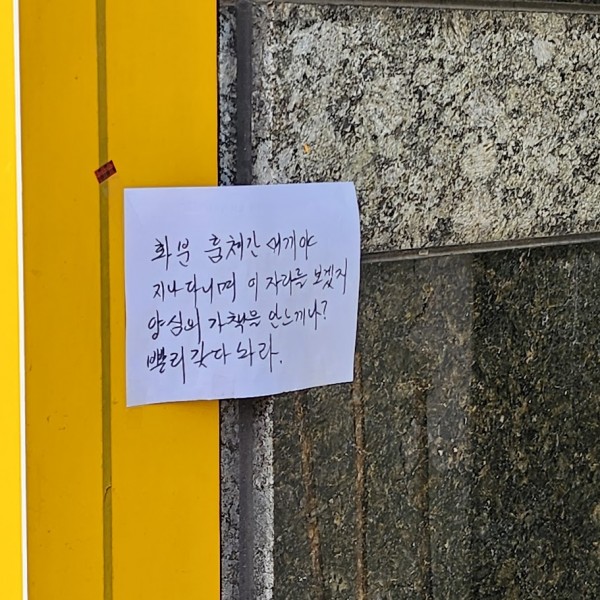 화분 훔체간 새끼야
지나다니며 이 자리를 보겠지
양심의 가책을 안느끼나?
빨리 갖다 놔라.